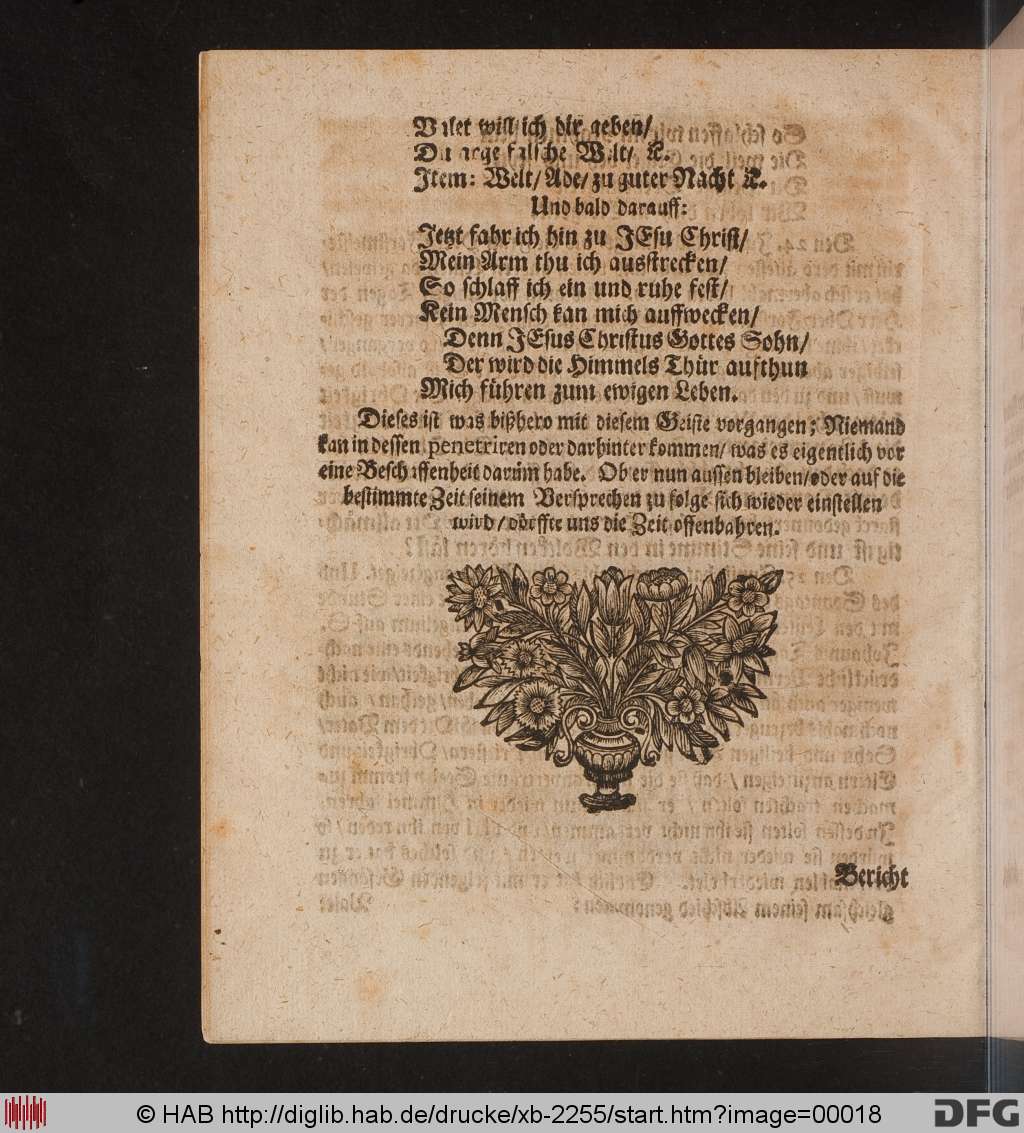 Valet will ich dir geben/
Du arge falsche Welt/ ꝛc.
Item: Welt/ Ade/ zu guter Nacht ꝛc.
Und bald darauff:
Jetzt fahr ich hin zu JEsu Christ/
Mein Arm thu ich ausstrecken/
So schlaff ich ein und ruhe fest/
Kein Mensch kan mich auffwecken/
Denn JEsus Christus Gottes Sohn/
Der wird die Himmels Thür aufthun
Mich führen zum ewigen Leben.
Dieses ist was bißhero mit diesem Geiste vorgangen; Niemand
kan in dessen penetriren oder darhinter kommen/ was es eigentlich vor
eine Beschaffenheit darüm habe. Ob er nun aussen bleiben/ oder auf die
bestimmte Zeit seinem Versprechen zu folge sich wieder einstellen
wird/ dörffte uns die Zeit offenbahren.
Bericht
© HAB http://diglib.hab.de/drucke/xb-2255/start.htm?image=00018
DFG